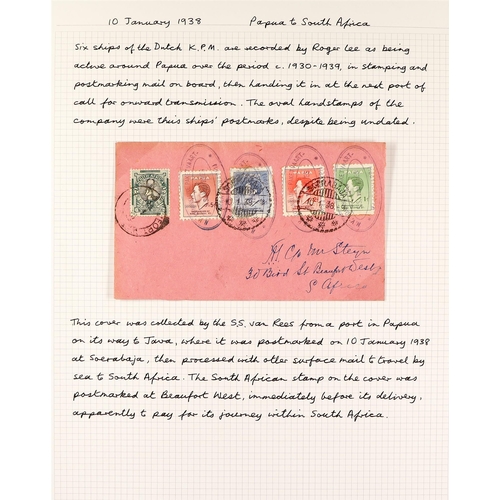 10 January 1938 Papua to South Africa
Six ships of the Dutch K.P.M. are recorded by Roger Lee as being
active around Papua over the period c. 1930-1939, in stamping and
postmarking mail on board, then handing it in at the next port of
call for onward transmission. The oval handstamps of the
company were this ships' postmarks, despite being undated.
PAPUA PAPUA PAPUA PAPUA
SOERABAJA SOERABAJA
10.1.38 10.1.38
H Co Mr Steyn
30 Bird St Beaufort West
S. Africa
This cover was collected by the S.S. van Rees from a port in Papua
on its way to Java, where it was postmarked on 10 January 1938
at Soerabaja, then processed with other surface mail to travel by
sea to South Africa. The South African stamp on the cover was
postmarked at Beaufort West, immediately before its delivery,
apparently to pay for its journey within South Africa.